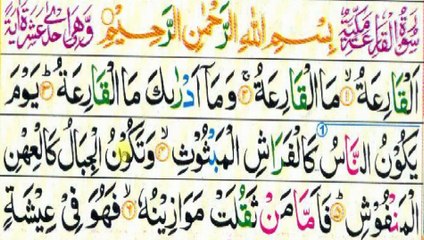 سُوْرَةُ الْقَارِعَةِ مَكِّيَّةٌ بِسْمِ اللهِ الرَّحْمٰنِ الرَّحِيْمِ وَّهِيَ اِحْدٰى عَشَرَةَ اٰيَةً
اَلْقَارِعَةُ ۙ﴿۱﴾ مَا الْقَارِعَةُ ۚ﴿۲﴾ وَمَاۤ اَدْرٰىكَ مَا الْقَارِعَةُ ؕ﴿۳﴾ يَوْمَ
يَكُوْنُ النَّاسُ كَالْفَرَاشِ الْمَبْثُوْثِ ۙ﴿۴﴾ وَتَكُوْنُ الْجِبَالُ كَالْعِهْنِ
الْمَنْفُوْشِ ؕ﴿۵﴾ فَاَمَّا مَنْ ثَقُلَتْ مَوَازِيْنُهٗ ۙ﴿۶﴾ فَهُوَ فِيْ عِيْشَةٍ